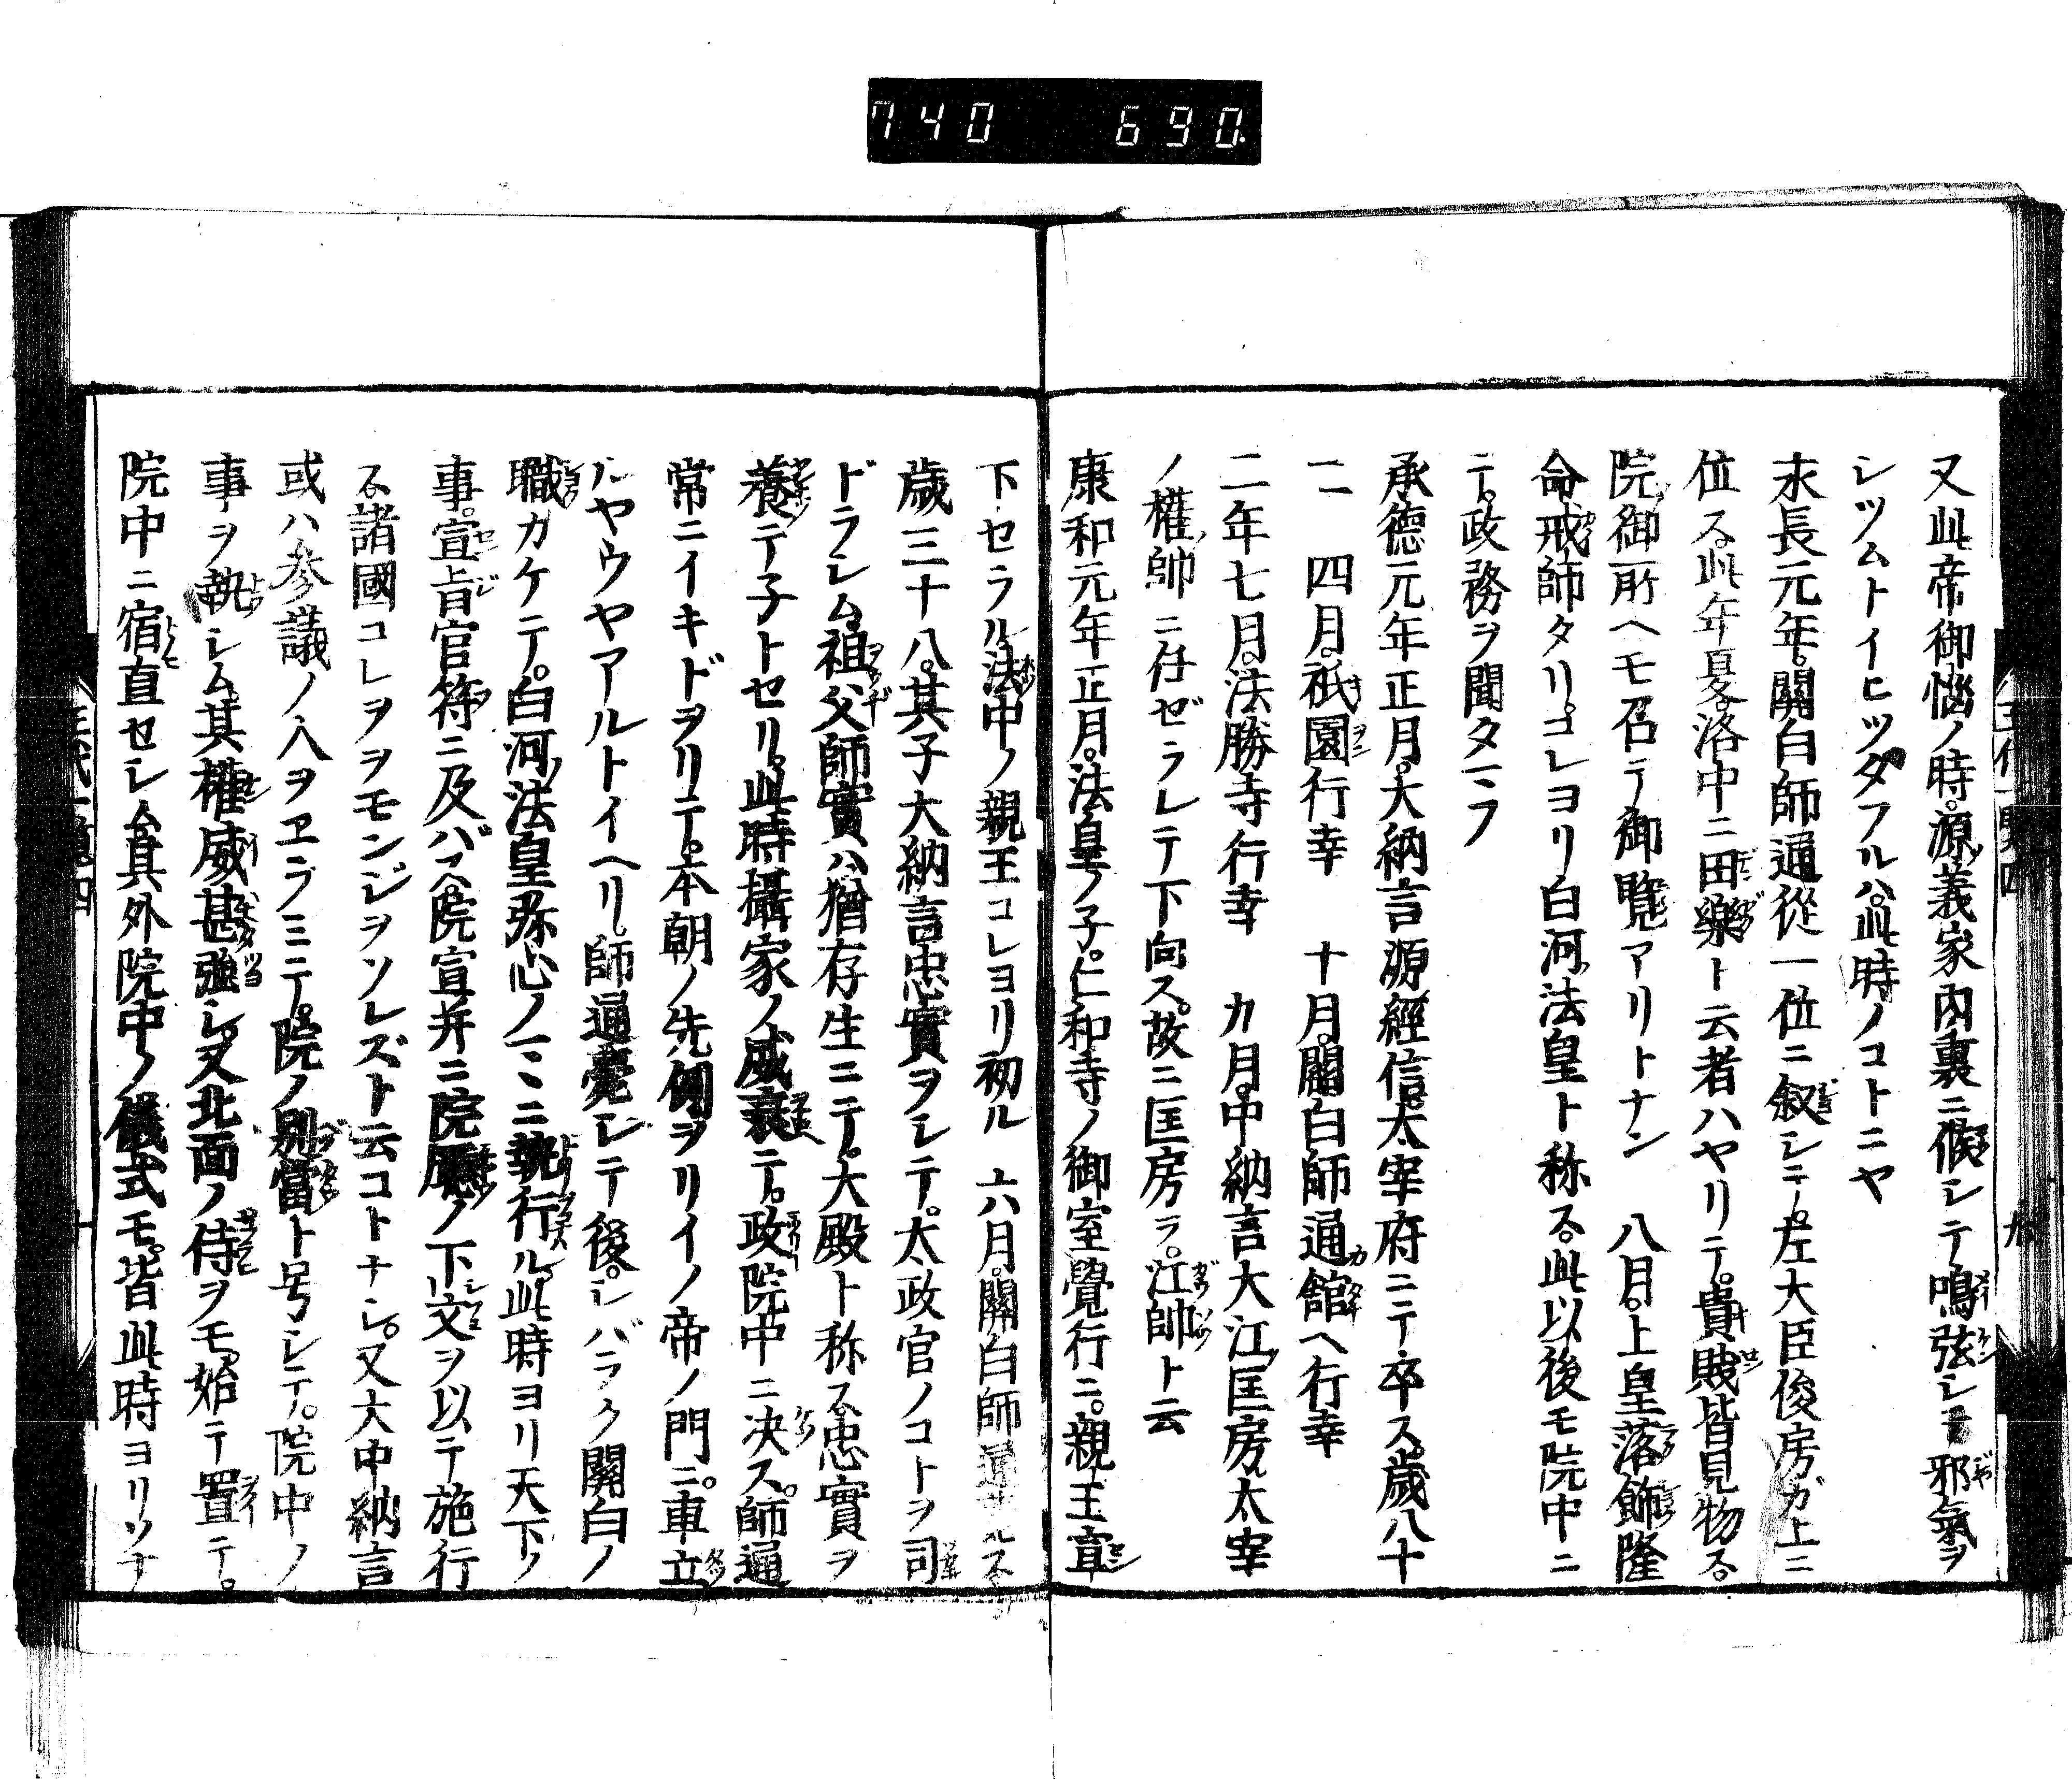 740 690
又此帝御惱ノ時。源義家内裏ニ候シテ鳴弦シテ邪氣ヲ
シツムトイヒツタフルハ。此時ノコトニヤ
永長元年。關白師通從一位ニ叙シテ。左大臣俊房ガ上ニ
位ス。此年夏洛中ニ田樂ト云者ハヤリテ。貴賤皆見物ス。
院ノ御所ヘモ召テ御覽アリトナン　八月。上皇落飾隆
命戒師タリ。コレヨリ白河ノ法皇ト称ス。此以後モ院中ニ
テ。政務ヲ聞タマフ
承徳元年正月。大納言源經信太宰府ニテ卒ス。歳八十
二　四月。祇園行幸　十月。關白師通ノ館ヘ行幸
二年七月。法勝寺行幸　九月。中納言大江ノ匡房太宰
ノ權ノ帥ニ任ゼラレテ下向ス。故ニ匡房ヲ。江帥ト云
康和元年正月。法皇ノ子。仁和寺ノ御室覺行ニ。親王宣
下セラル。法中ノ親王コレヨリ初ル　六月。關白師通薨ス
歳三十八。其子大納言忠實ヲシテ。太政官ノコトヲ司
ドラシム。祖父師實ハ猶存生ニテ。大殿ト称ス。忠實ヲ
養テ子トセリ。此時攝家ノ威衰テ。政院中ニ决ス。師通
常ニイキドヲリテ。本朝ノ先例ヲリイノ帝ノ門ニ。車立
ルヤウヤアルトイヘリ。師通薨シテ後。シバラク關白ノ
職カケテ。白河ノ法皇弥心ノマヽニ執行ル。此時ヨリ天下ノ
事。宣旨官符ニ及バス。院宣并ニ院廳ノ下文ヲ以テ施行
ス。諸國コレヲヲモンジヲソレズト云コトナシ。又大中納言
或ハ參議ノ人ヲヱラミテ。院ノ別當ト号シテ。院中ノ
事ヲ執シム。其權威甚強シ。又北面ノ侍ヲモ。始テ置テ。
院中ニ宿直セシム。其外院中ノ儀式モ。皆此時ヨリソナ